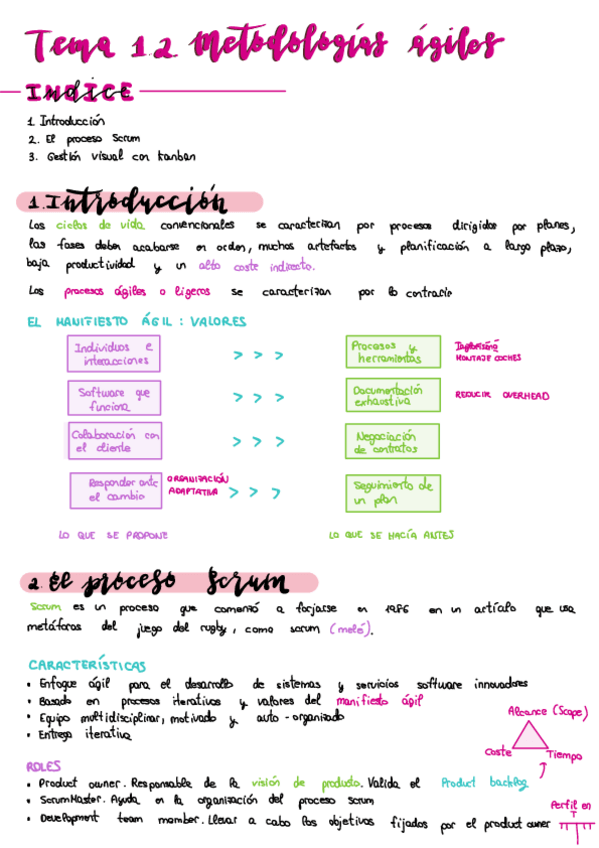 Tema 1.2 Metodologías ágiles
INDICE
1. Introducción
2. El proceso Scrum
3. Gestión visual con kanban
1. Introducción
Los ciclos de vida convencionales se caracterizan por procesos dirigidos por planes,
las fases deben acabarse en orden, muchos artefactos y planificación a largo plazo,
baja productividad y un alto coste indirecto.
Los procesos ágiles o ligeros se caracterizan por lo contrario
EL MANIFIESTO ÁGIL : VALORES
Individuos e interacciones > > > Procesos y herramientas Taylorismo MONTAJE COCHES
Software que funciona > > > Documentación exhaustiva REDUCIR OVERHEAD
Colaboración con el cliente > > > Negociación de contratos
Responder ante el cambio ORGANIZACIÓN ADAPTATIVA > > > Seguimiento de un plan
LO QUE SE PROPONE LO QUE SE HACÍA ANTES
2. El proceso Scrum
Scrum es un proceso que comenzó a forjarse en 1986 en un artículo que usa
metáforas del juego del rugby, como scrum (melé).
CARACTERÍSTICAS
• Enfoque ágil para el desarrollo de sistemas y servicios software innovadores
• Basado en procesos iterativos y valores del manifiesto ágil
• Equipo multidisciplinar, motivado y auto-organizado
• Entrega iterativa
Alcance (Scope)
Coste Tiempo
ROLES
• Product owner. Responsable de la visión de producto. Valida el Product backlog
• ScrumMaster. Ayuda en la organización del proceso scrum
• Development team member. Llevar a cabo los objetivos fijados por el product owner
Perfil en
T